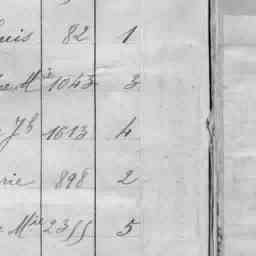 uis 82 1
e Mᵉ 1043 3
Jʰ 1613 4
rie 898 2
Mie 2355 5